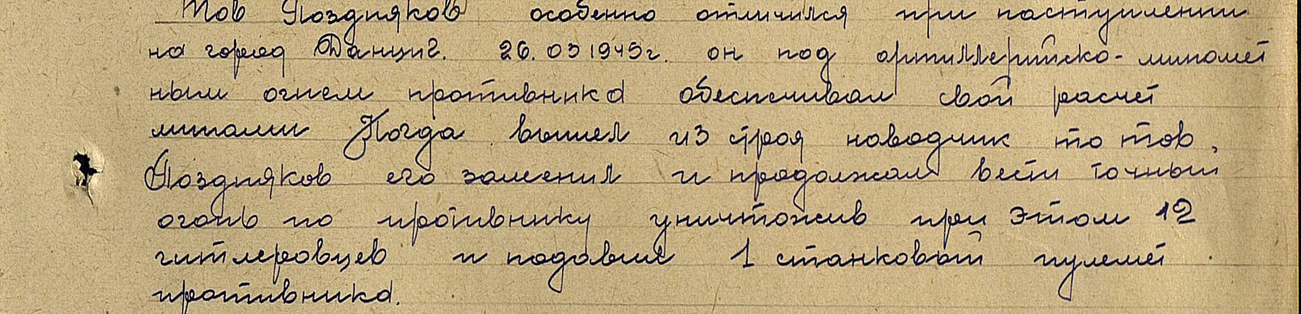 Тов Поздняков особенно отличился при наступлении
на город Данциг. 26.03 1945г. он под артиллерийско-миномет
ным огнем противника обеспечивал свой расчет
минами Когда вышел из строя наводчик то тов.
Поздняков его заменил и продолжал вести точный
огонь по противнику уничтожив при этом 12
гитлеровцев и подавил 1 станковый пулемет
противника.